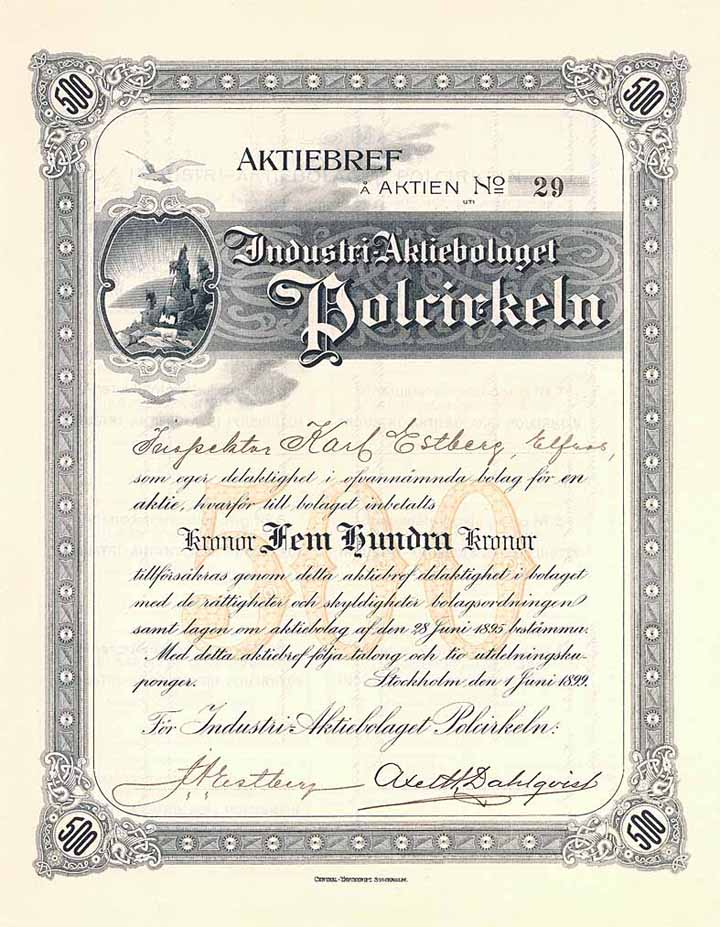 500
500
AKTIEBREF
Å AKTIEN No 29
UTI
Industri-Aktiebolaget
Polcirkeln
Inspektor Karl Estberg, Elfros,
som eger delaktighet i ofvannämnda bolag för en
aktie, hvarför till bolaget inbetalts
Kronor Fem Hundra Kronor
tillförsäkras genom detta aktiebref delaktighet i bolaget
med de rättigheter och skyldigheter bolagsordningen
samt lagen om aktiebolag af den 28 Juni 1895 bestämma.
Med detta aktiebref följa talong och tio utdelningsku-
ponger. Stockholm den 1 Juni 1899.
500
För Industri-Aktiebolaget Polcirkeln:
J. A. Estberg Axel H. Dahlqvist
500
500
CENTRAL-TRYCKERIET, STOCKHOLM.